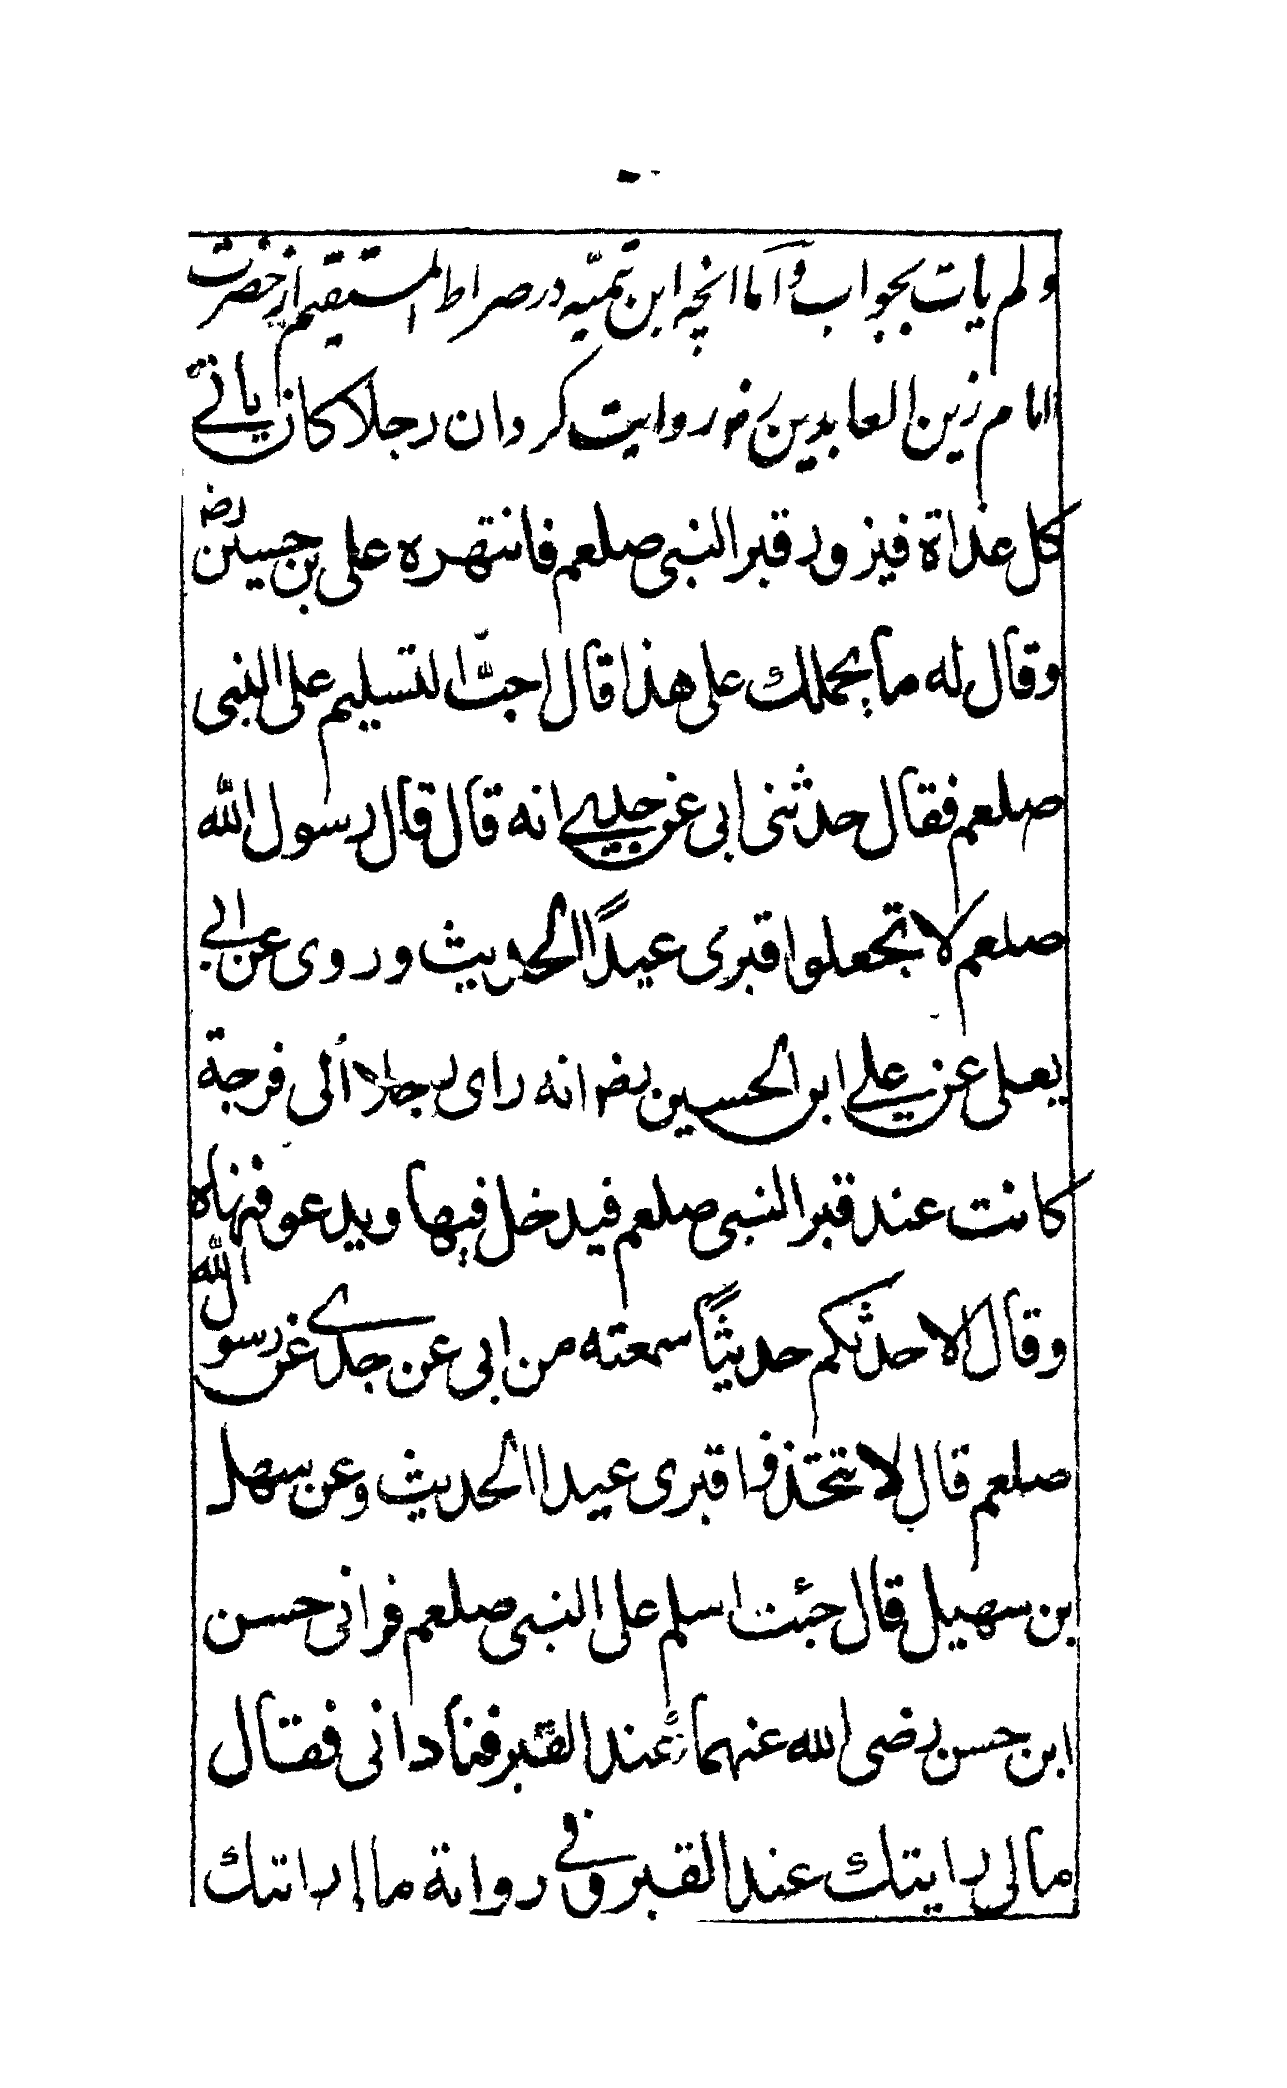 ولم یات بجواب و اما انچه ابن تیمیّه در صراط المستقیم از حضرت
امام زین العابدین رض روایت کرد ان رجلا کان یاتے
کل غداة فیزور قبر النبی صلعم فانتهره علی بن حسین رض
وقال له ما یحملك علی هذا قال احبّ التسلیم علی النبی
صلعم فقال حدثنی ابی عن جدی انه قال قال رسول الله
صلعم لا تجعلوا قبری عیدًا الحدیث و روی عن ابی
یعلی عن علی ابن الحسین رض انه رای رجلا الی فرجة
کانت عند قبر النبی صلعم فیدخل فیها ویدعو فنهاه
وقال الا احدثکم حدیثًا سمعته من ابی عن جدی عن رسول الله
صلعم قال لا تتخذوا قبری عیدا الحدیث وعن سهل
بن سهیل قال جئت اسلم علی النبی صلعم فرانی حسن
ابن حسن رضی الله عنهما عند القبر فنادانی فقال
مالی رایتك عند القبر وفی روایة ما لی رایتك